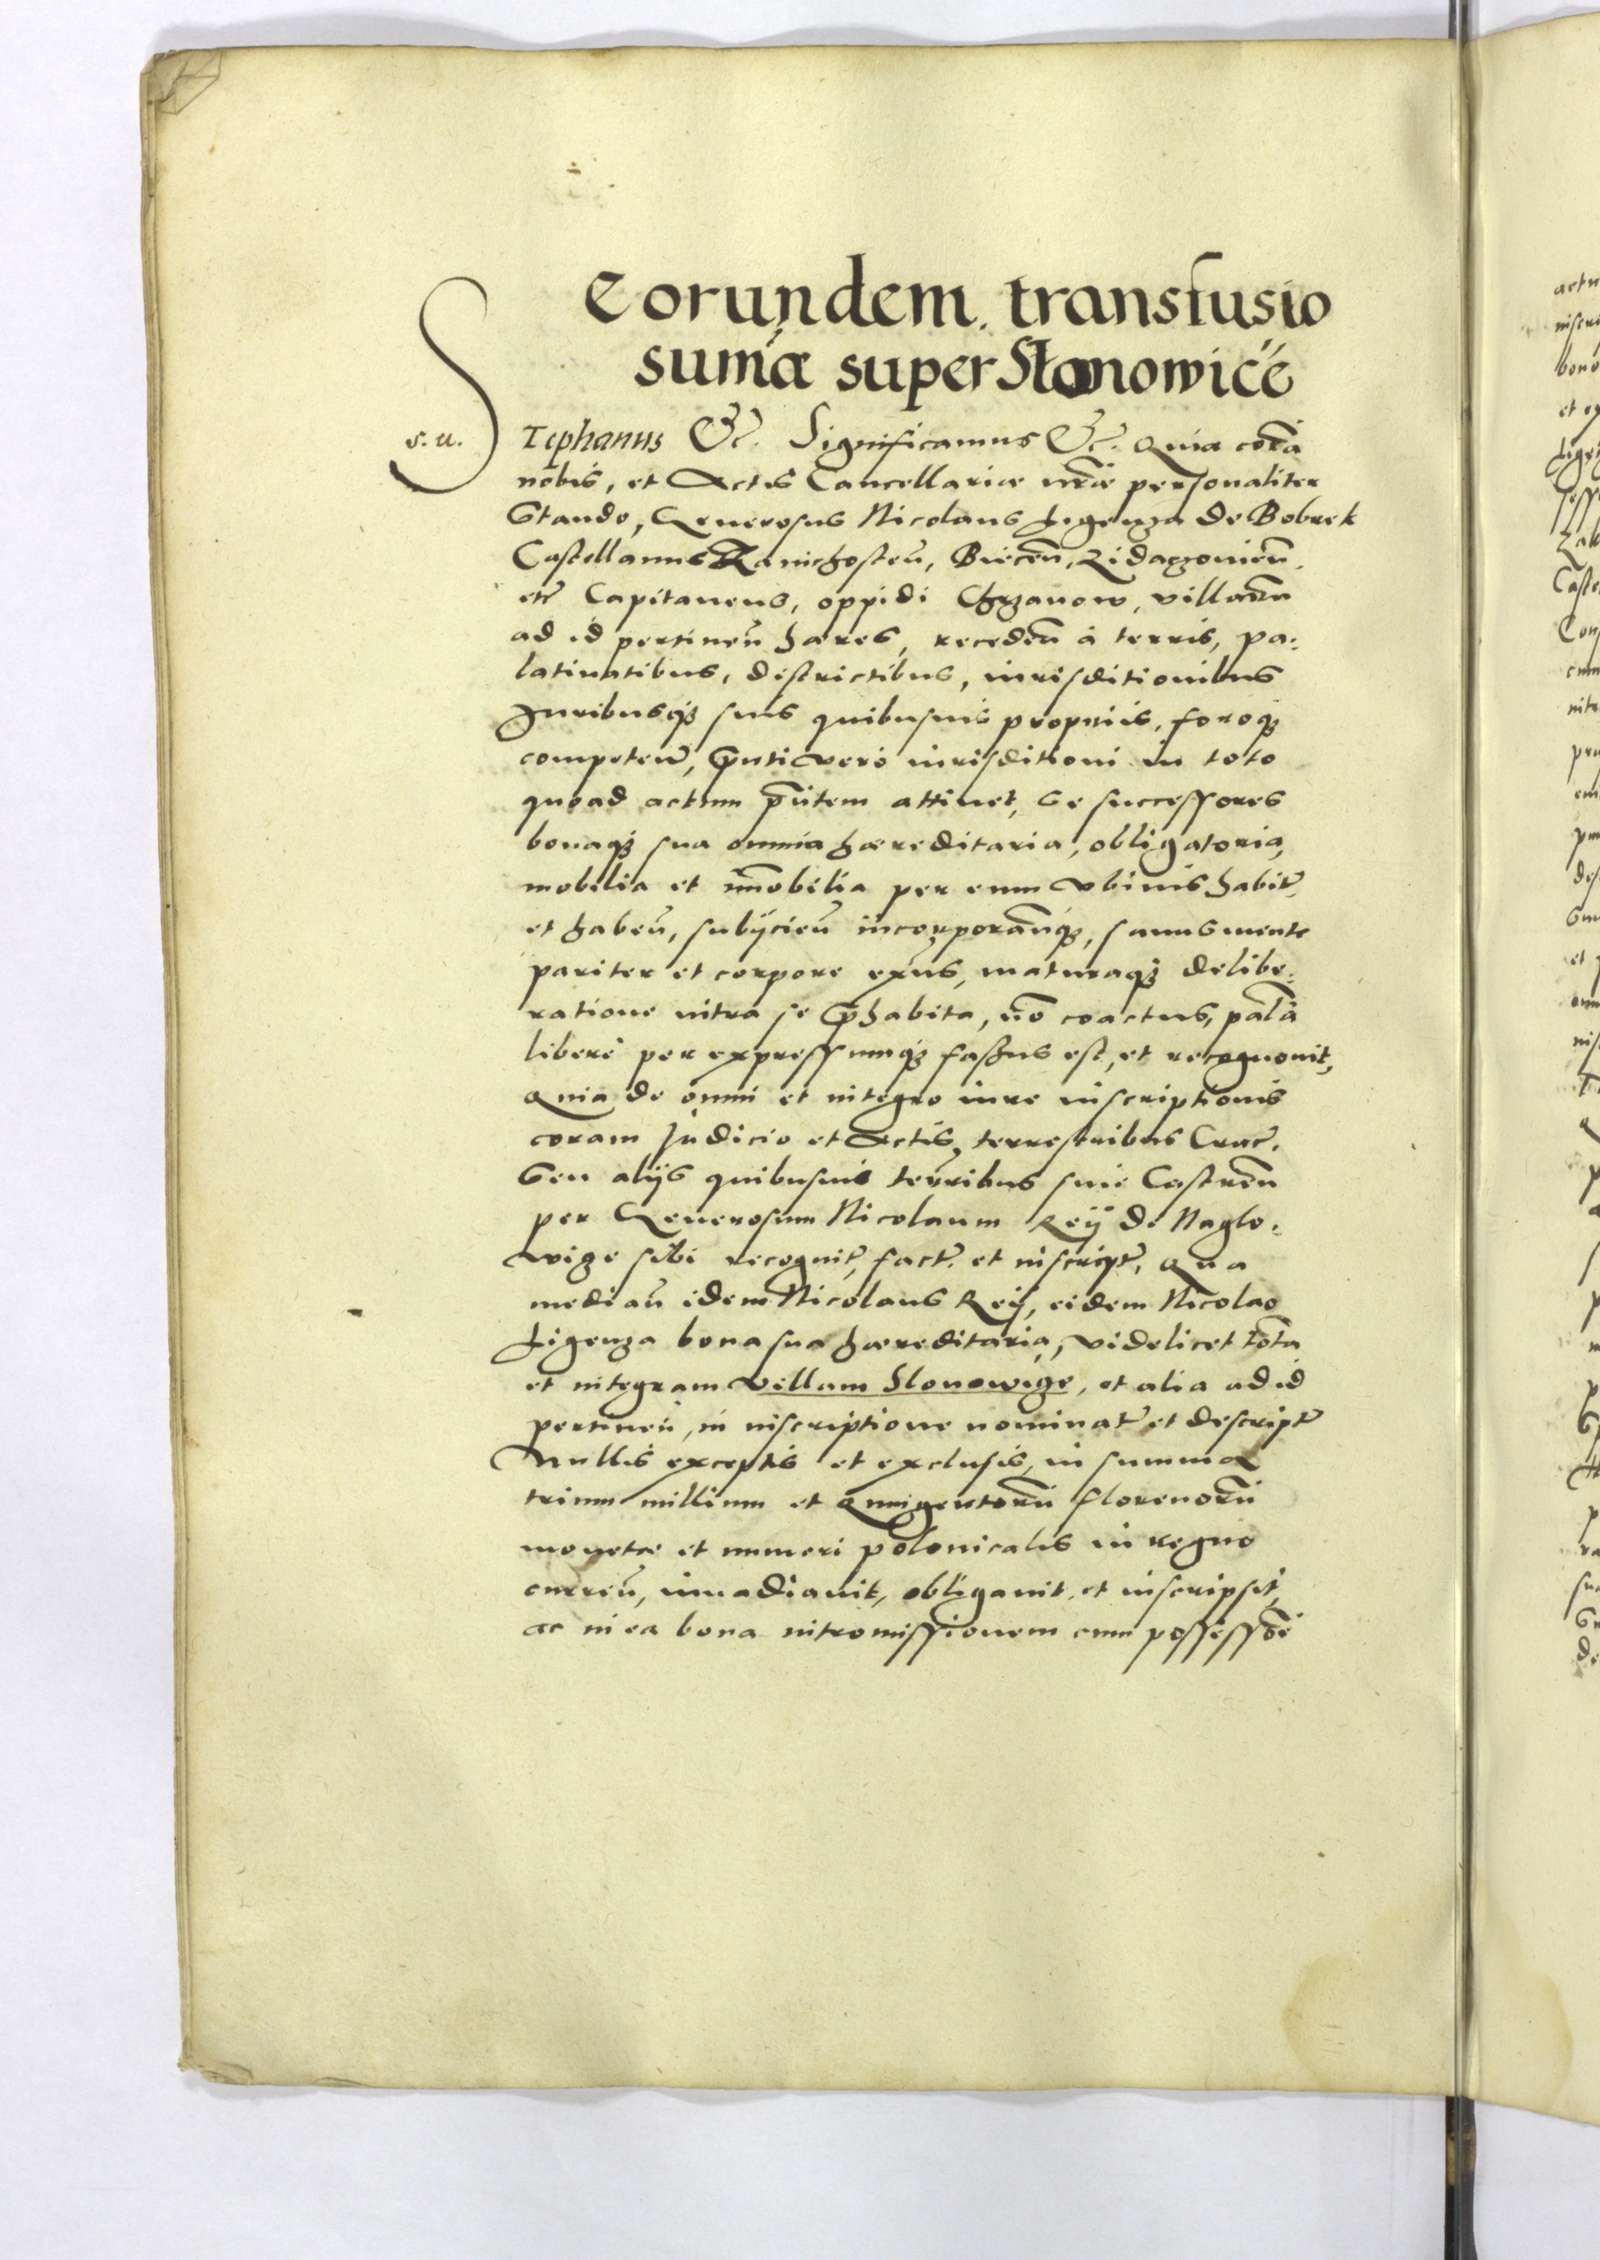 Eorundem transfusio
sumæ super Słonowicé
s. u.
Stephanus &c. Significamus &c. Quia corā
nobis, et Actis Cancellariæ nr̄æ personaliter
Stando, Generosus Nicolaus Ligenza de Bobrek
Castellanus Zawichosteñ, Biecen̄, Zidaczovien̄
etc̄ Capitaneus, oppidi Chrzanow, villarum
ad id pertineñ hæres, recedeñ à terris, pa-
latinatibus, districtibus, iurisditionibus
Iuribusq́ꝫ suis quibusuis proprijs, foroq́ꝫ
competeñ, p̄nti vero iurisditioni in toto
quoad actum p̄ntem attinet, se successores
bonaq́ꝫ sua omnia hæreditaria, obligatoria,
mobilia et im̄obilia per eum vbiuis habit̄
et habeñ, subijcieñ incorporan̄q́ꝫ, sanus mente
pariter et corpore exn̄s, maturaq́ꝫ delibe-
ratione intra se p̄habita, nō coactus, palā
liberè per expressumq́ꝫ fassus est, et recognouit,
Quia de omni et integro iure inscriptionis
coram Judicio et Actis terrestribus Crac̄.
Seu alijs quibusuis terr̄ribus siue Castreñ
per Generosum Nicolaum Reÿ de Naglo-
wize sibi recognit̄, fact̄ et inscript̄, Qua
mediañ idem Nicolaus Reÿ, eidem Nicolao
Ligenza bona sua hæreditaria, videlicet totā
et integram villam Slonowize, et alia ad id
pertineñ, in inscriptione nominat̄ et descript̄
Nullis exceptis et exclusis, in summa
trium millium et Quingentorū florenorū
monetæ et numeri polonicalis in regno
curreñ, inuadiauit, obligauit et inscripsit,
ac in ea bona intromissionem cum possessiōe